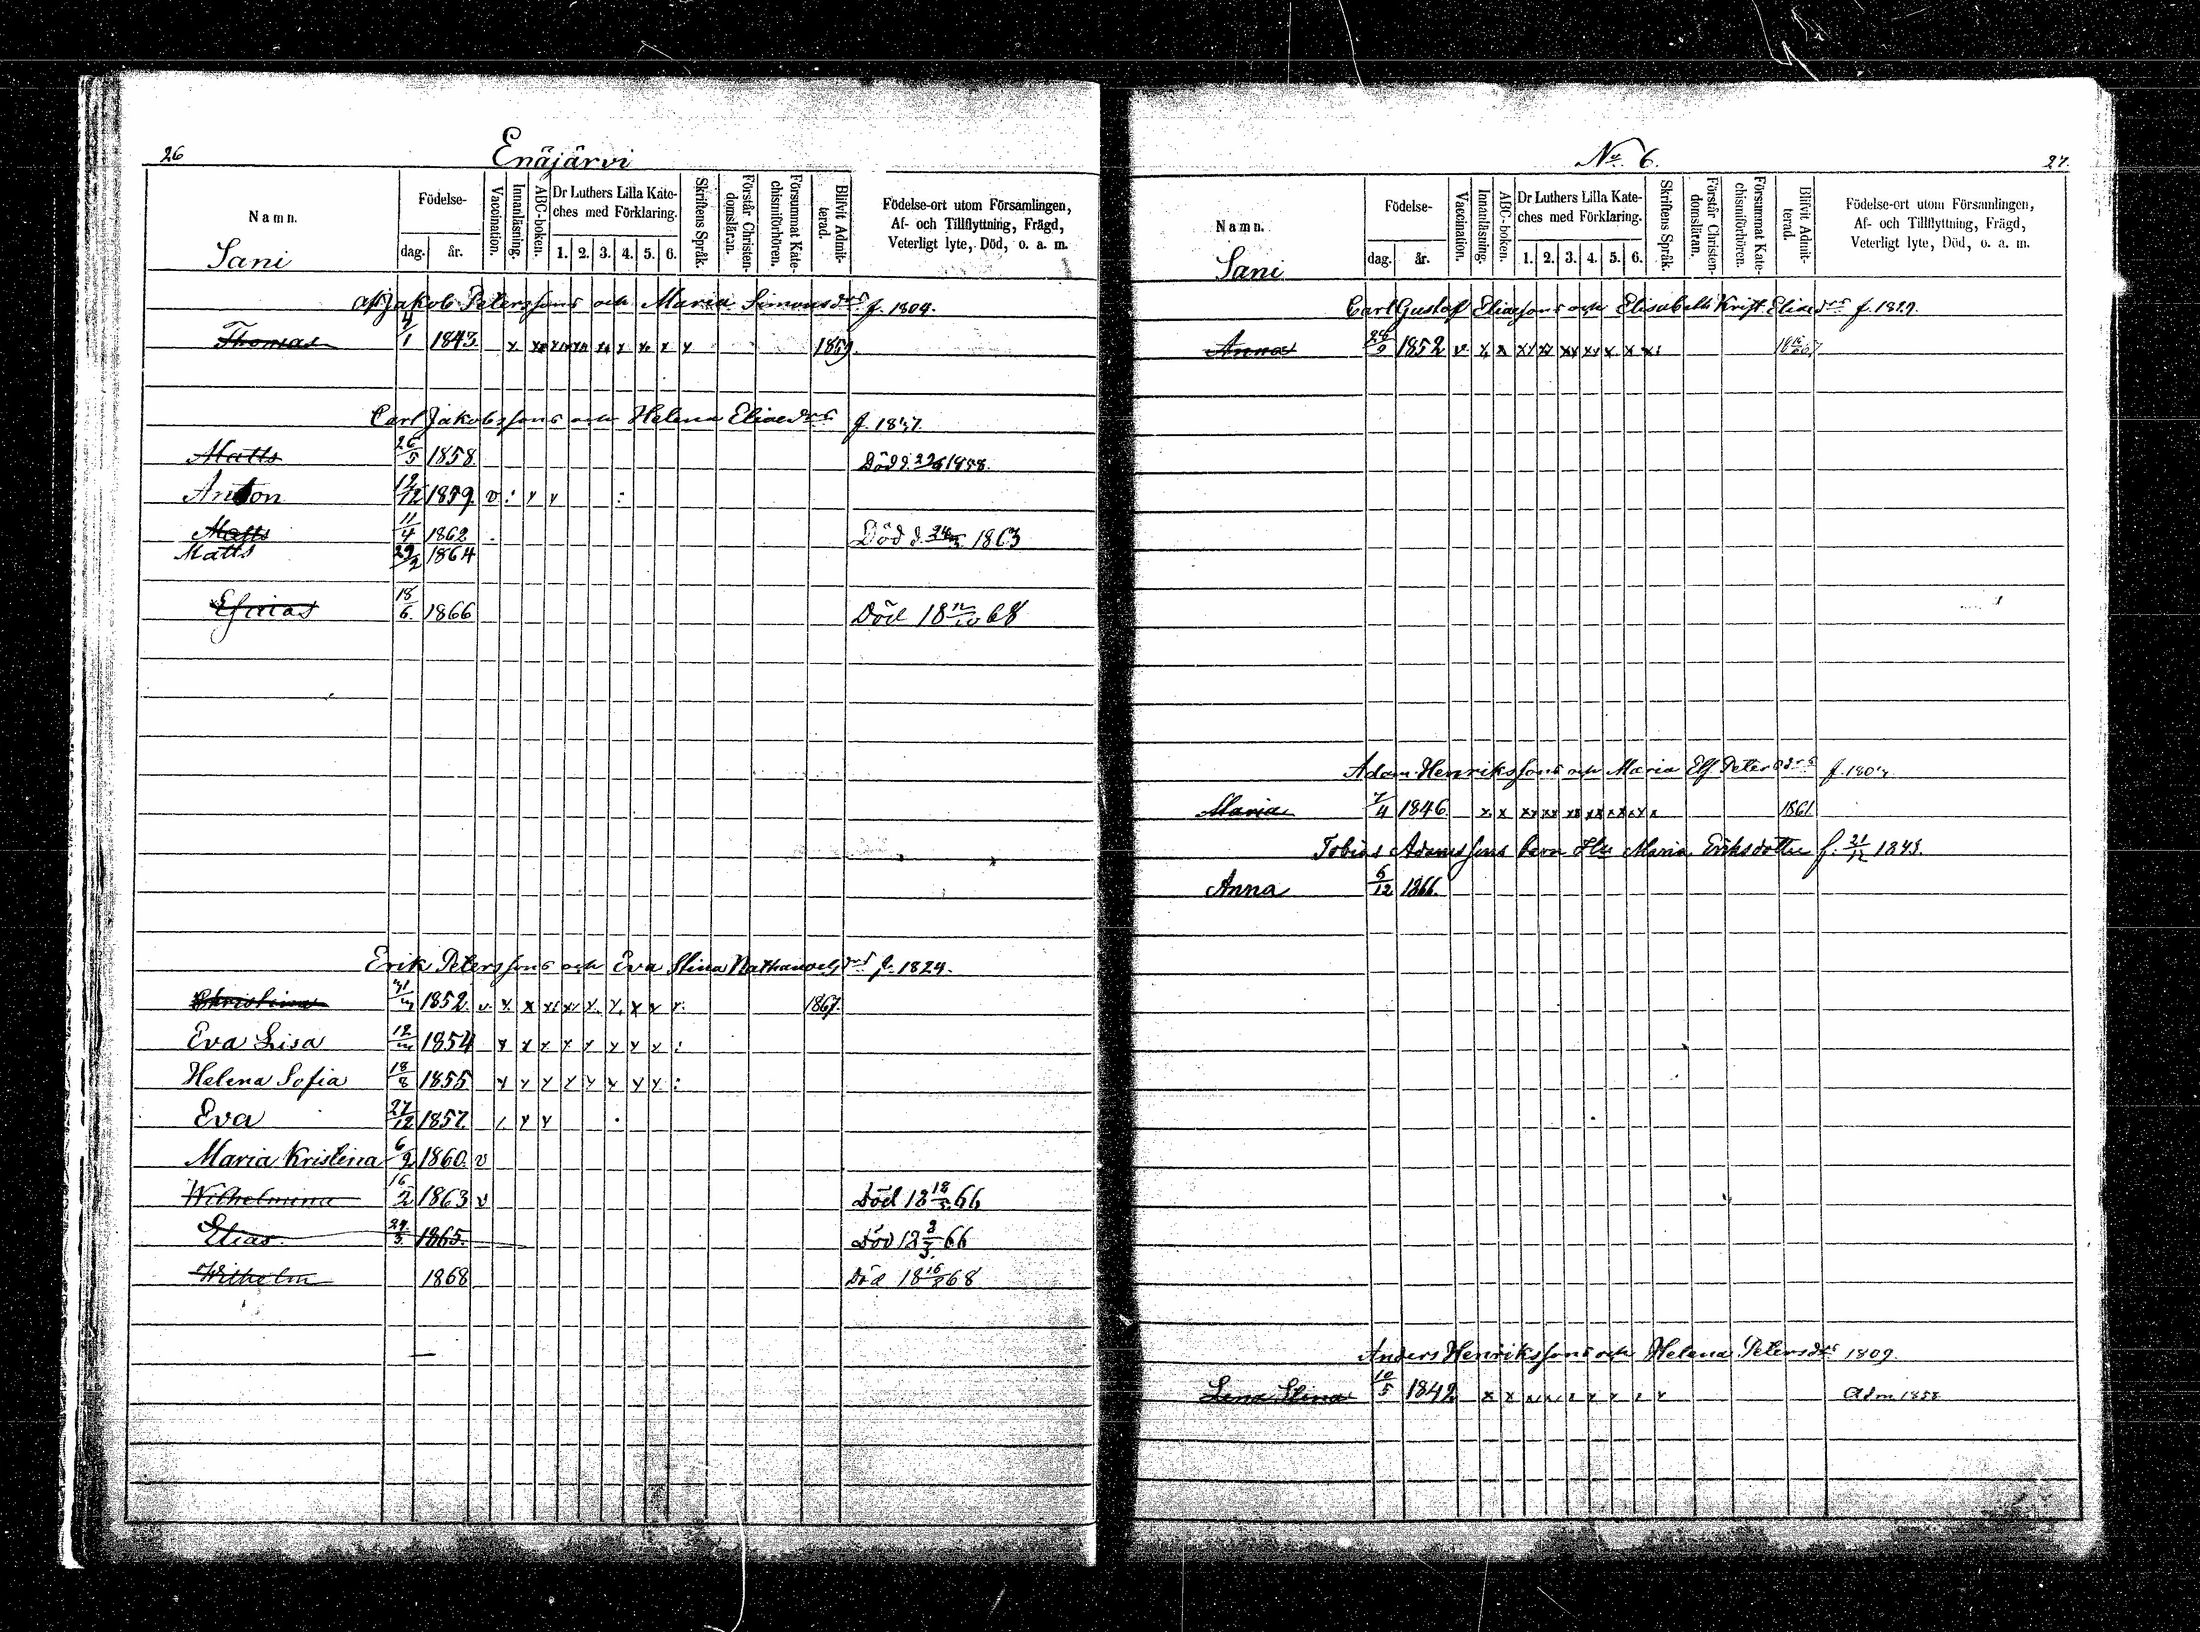 26
Enäjärvi
Namn.
Födelse-
dag.
år.
Vaccination.
Innanläsning.
ABC-boken.
Dr Luthers Lilla Kate-
ches med Förklaring.
1. 2. 3. 4. 5. 6.
Skriftens Språk.
Förstår Christen-
domsläran.
Försummat Kate-
chismiförhören.
Blifvit Admit-
terad.
Födelse-ort utom Församlingen,
Af- och Tillflyttning, Frägd,
Veterligt lyte, Död, o. a. m.
Sani
Jakob Peterssons och Maria Simonsdrs f. 1804.
Thomas 4/1 1843 x x x x x 1859.
Carl Jakobssons och Helena Eliaedrs
Matts 26/5 1858 Död d. 1858.
Anton 12/12 1859 v : x x :
Matts 11/4 1862 Död d. 24/3 1863
Matts 29/2 1864
Efraias 18/6 1866 Död 18 12/10 68
Erik Peterssons och Eva Stina Nathanaelsdrs f. 1824.
Christina 1852 v x x x x x x x x x 1867.
Eva Lisa 1854 x x x x x x x x :
Helena Sofia 18/8 1855 x x x x x x x x :
Eva 27/12 1857 x x
Maria Kristina 6/2 1860 v
Wilhelmina 16/2 1863 v Död 18 18/3 66
Elias 29/3 1865 Död 18 3/3 66
Wilhelm 1868 Död 18 68
No 6.
27.
Namn.
Födelse-
dag.
år.
Vaccination.
Innanläsning.
ABC-boken.
Dr Luthers Lilla Kate-
ches med Förklaring.
1. 2. 3. 4. 5. 6.
Skriftens Språk.
Förstår Christen-
domsläran.
Försummat Kate-
chismiförhören.
Blifvit Admit-
terad.
Födelse-ort utom Församlingen,
Af- och Tillflyttning, Frägd,
Veterligt lyte, Död, o. a. m.
Sani
Carl Gustaf Eliassons och Elisabeth Krist. Eliaedrs
Anna 24/9 1852 v x x xx xx xx xx x x x
Adam Henrikssons och Maria Elis. Petersdrs
Maria 7/4 1846 x x xx xx xx xx xx xx x 1861
Tobias Adamssons barn Hu Maria Eriksdotter f. 21/12 1843.
Anna 6/12 1866.
Anders Henrikssons och Helena Petersdrs 1809.
Lena Stina 10/5 1842 x x x x x x x x x Adm 1858